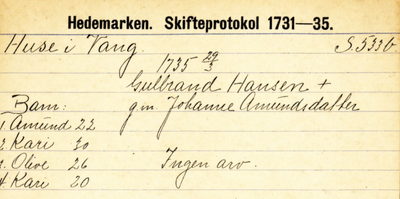 Hedemarken. Skifteprotokol 1731—35.
Huse i Vang. S. 533b
1735 29/3
Gulbrand Hansen +
g.m. Johanne Amundsdatter
Barn:
1 Amund 22
2 Kari 30
3. Olive 26 Ingen arv.
4. Kari 20